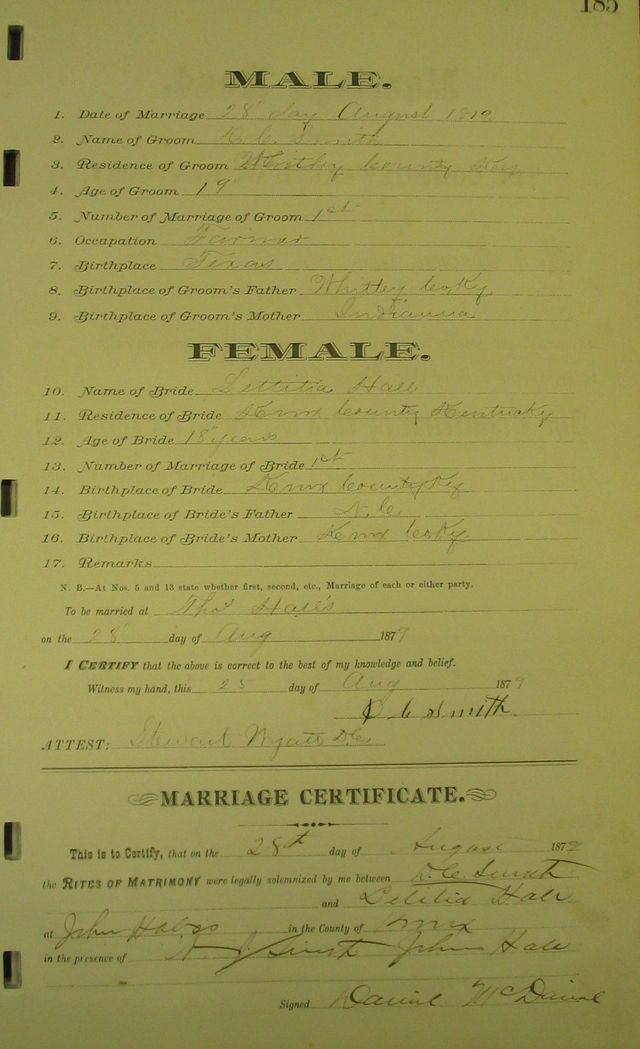 185
MALE.
1. Date of Marriage 28 day August 1879
2. Name of Groom D. C. Smith
3. Residence of Groom Whitley County Key
4. Age of Groom 19
5. Number of Marriage of Groom 1st
6. Occupation Farmer
7. Birthplace Texas
8. Birthplace of Groom's Father Whitley Co Ky
9. Birthplace of Groom's Mother Indianna
FEMALE.
10. Name of Bride Lettitia Hall
11. Residence of Bride Knox County Kentucky
12. Age of Bride 18 years
13. Number of Marriage of Bride 1st
14. Birthplace of Bride Knox County Key
15. Birthplace of Bride's Father N. C.
16. Birthplace of Bride's Mother Knox Co Ky
17. Remarks
N. B.—At Nos. 5 and 13 state whether first, second, etc., Marriage of each or either party.
To be married at Thos Hall's
on the 28 day of Aug 1879
I CERTIFY that the above is correct to the best of my knowledge and belief.
Witness my hand, this 25 day of Aug 1879
D C Smith
ATTEST: Stewart Wyatt D.C.
MARRIAGE CERTIFICATE.
This is to Certify, that on the 28th day of August 1879
the RITES OF MATRIMONY were legally solemnized by me between D. C. Smith
and Letitia Hall
at John Halls in the County of Knox
in the presence of Smith John Hall
Signed Daniel McDanil